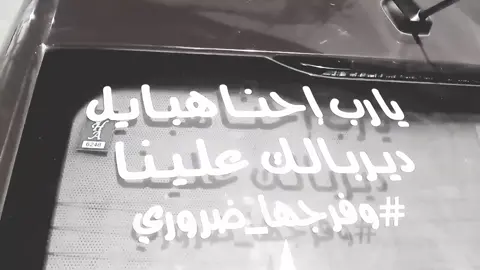 يارب إحنا هبايل
ديربالك علينا
#وفرجها_ضروري
6246